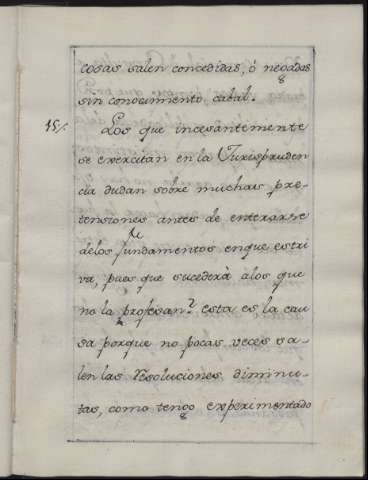 cosas salen concedidas, ò negadas
sin conocimiento cabal.
15/. Los que incesantemente
se exercitan en la Jurispruden
cia dudan sobre muchas pre-
tensiones antes de enterarse
delos fundamentos enque estri
va, pues que sucederà alos que
no la profesan? esta es la cau
sa porque no pocas veces sa-
len las resoluciones diminu-
tas, como tengo experimentado